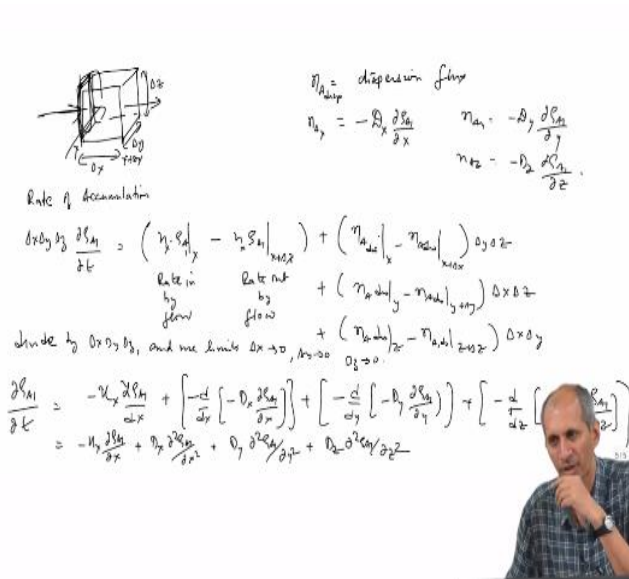 Δz
Δy
Δx
x+Δx
n_A disp = dispersion flux
n_Ax = -D_x ∂ρ_A1/∂x
n_Ay = -D_y ∂ρ_A1/∂y
n_Az = -D_z ∂ρ_A1/∂z
Rate of Accumulation
ΔxΔyΔz ∂ρ_A1/∂t = (u_x ρ_A1|_x - u_x ρ_A1|_x+Δx) + (n_A,disp|_x - n_A,disp|_x+Δx) ΔyΔz
Rate in by flow
Rate out by flow
+ (n_A,disp|_y - n_A,disp|_y+Δy) ΔxΔz
+ (n_A,disp|_z - n_A,disp|_z+Δz) ΔxΔy
divide by ΔxΔyΔz, and use limits Δx→0, Δy→0 Δz→0
∂ρ_A1/∂t = -u_x ∂ρ_A1/∂x + [-d/dx [-D_x ∂ρ_A1/∂x]] + [-d/dy [-D_y ∂ρ_A1/∂y]] + [-d/dz [
= -u_x ∂ρ_A1/∂x + D_x ∂²ρ_A1/∂x² + D_y ∂²ρ_A1/∂y² + D_z ∂²ρ_A1/∂z²